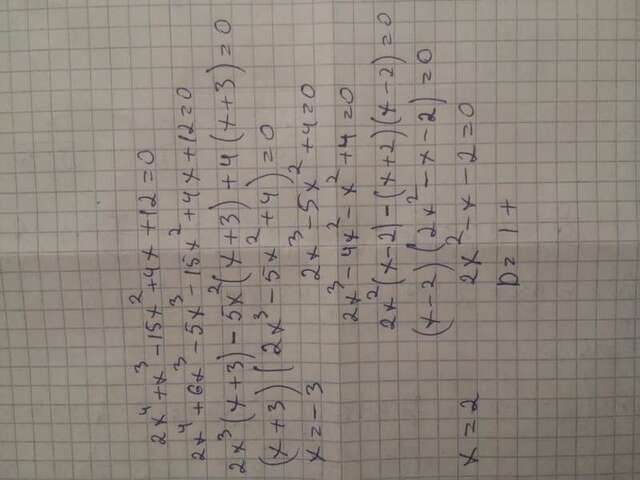 2x⁴ + x³ - 15x² + 4x + 12 = 0
2x⁴ + 6x³ - 5x³ - 15x² + 4x + 12 = 0
2x³(x+3) - 5x²(x+3) + 4(x+3) = 0
(x+3)(2x³ - 5x² + 4) = 0
x = -3 2x³ - 5x² + 4 = 0
2x³ - 4x² - x² + 4 = 0
2x²(x-2) - (x+2)(x-2) = 0
(x-2)(2x² - x - 2) = 0
x = 2 2x² - x - 2 = 0
D = 1 +